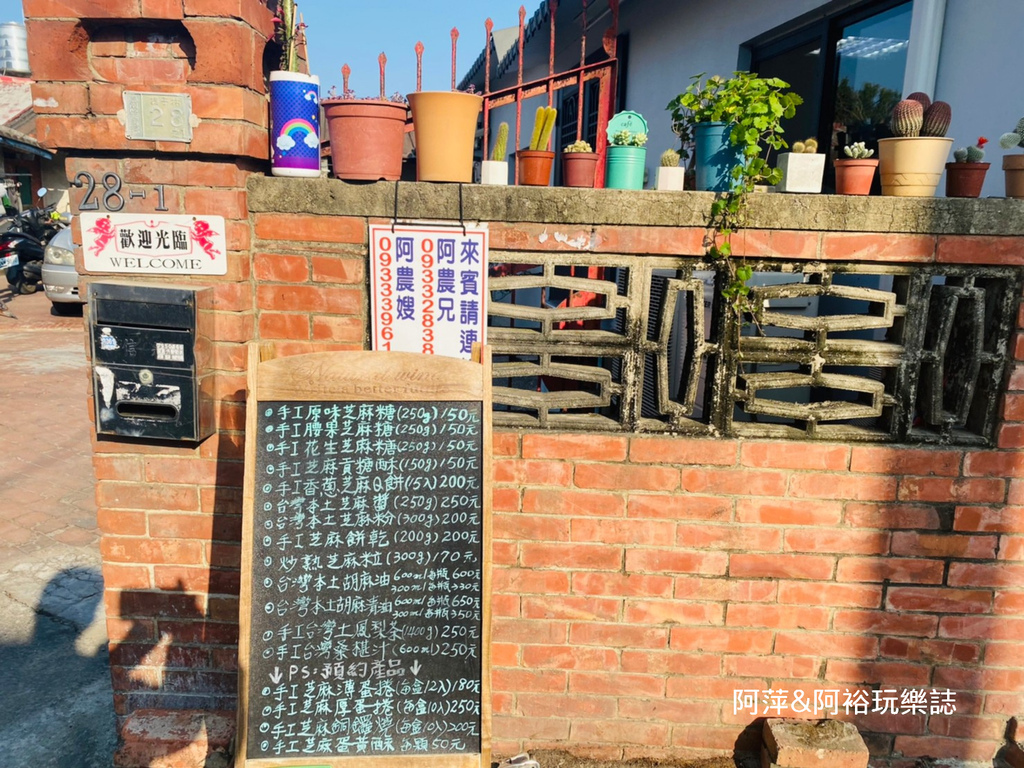 28
28-1
歡迎光臨
WELCOME
café
來賓請連
阿農兄
09332838
阿農嫂
09333961
a better
手工原味芝麻糖(250g)150元
手工腰果芝麻糖(250g)150元
手工花生芝麻糖(250g)150元
手工芝麻貢糖酥(150g)150元
手工香蔥芝麻Q餅(15入)200元
台灣本土芝麻醬(250g)250元
台灣本土芝麻粉(300g)200元
手工芝麻餅乾(200g)200元
炒熟芝麻粒(300g)170元
台灣本土胡麻油600ml每瓶600元
300ml每瓶330元
台灣本土胡麻清油600ml每瓶650元
300ml每瓶350元
手工台灣土鳳梨茶(1400g)250元
手工台灣桑椹汁(600ml)250元
↓PS:預約產品↓
手工芝麻薄蛋捲(每盒12入)180元
手工芝麻厚蛋捲(每盒10入)250元
手工芝麻銅鑼燒(每盒10入)200元
手工芝麻蛋黃酥每顆50元
阿萍&阿裕玩樂誌